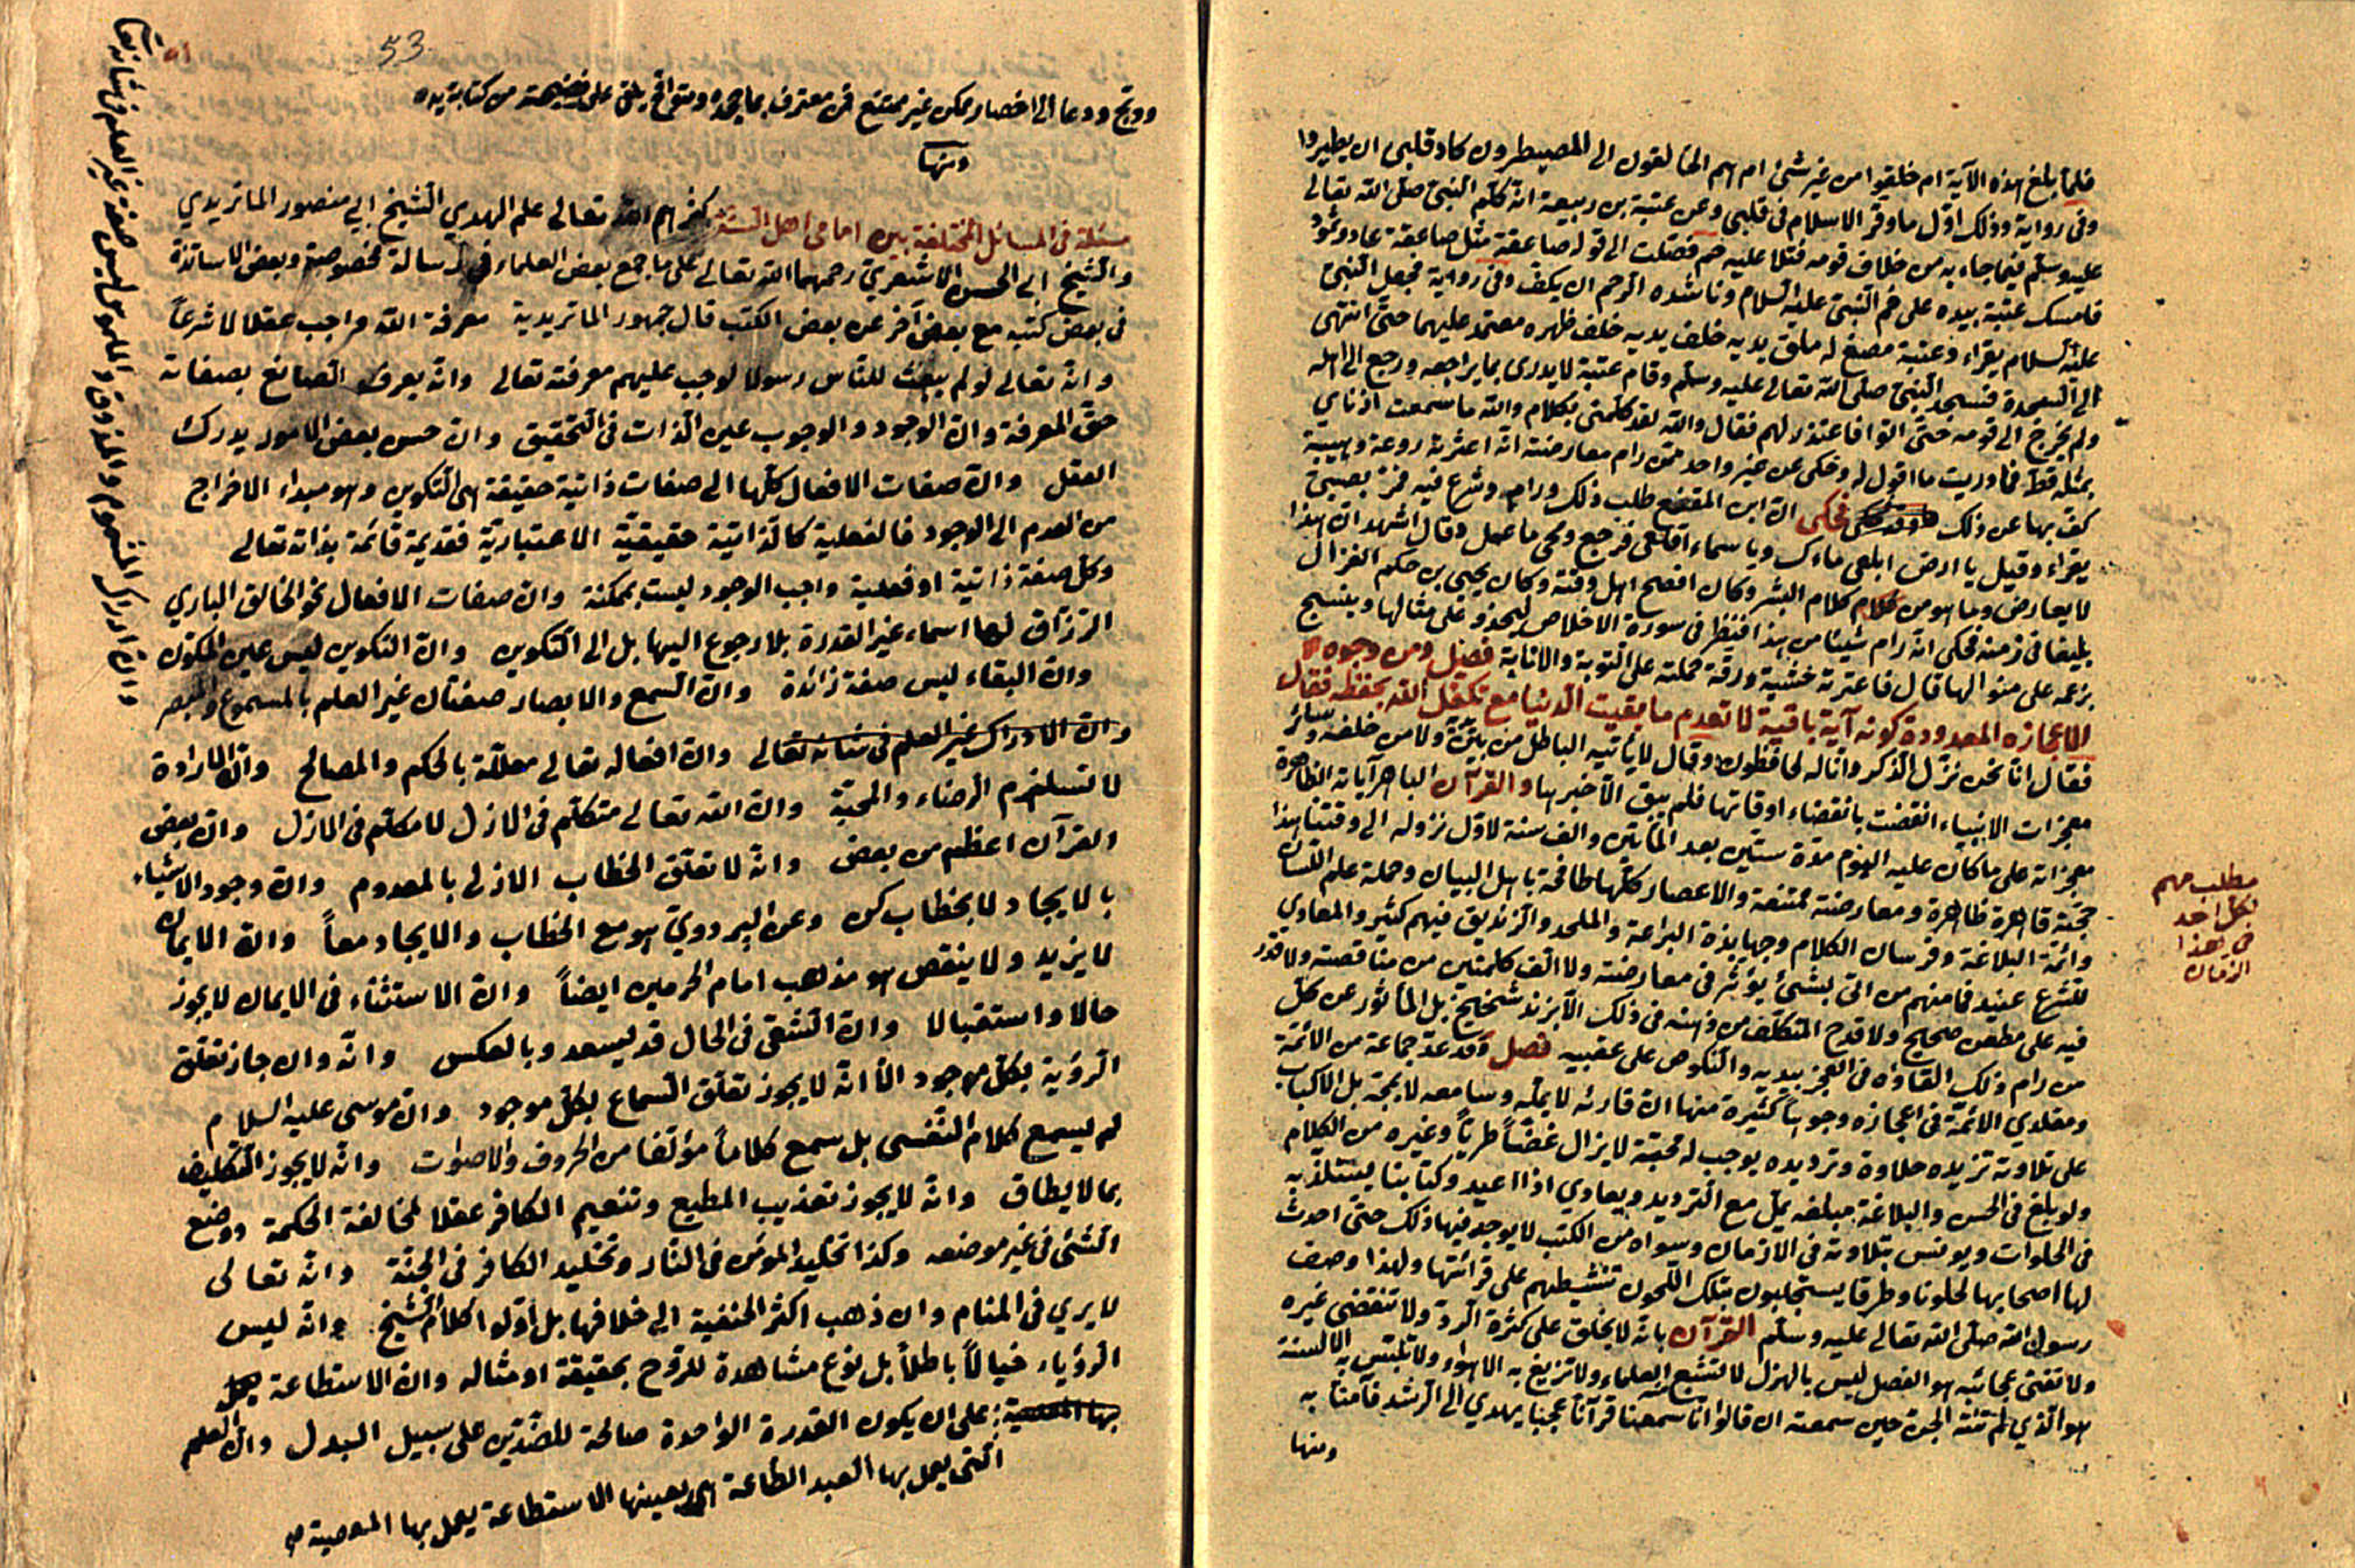 فلما بلغ هذه الآية ام خلقوا من غير شئ ام هم الخالقون الى المصيطرون كاد قلبي ان يطير وا
وفى رواية وذلك اول ما وقر الاسلام فى قلبي وعن عتبة بن ربيعة انه كلم النبي صلى الله تعالى
عليه وسلم فيما جاء به من خلاف قومه فتلا عليه حم فصلت الى قوله صاعقة مثل صاعقة عاد وثمود
فامسك عتبة بيده على فم النبي عليه السلام وناشده الرحم ان يكف وفى رواية فجعل النبي
عليه السلام يقراء وعتبة مصغ له ملق يديه خلف ظهره معتمد عليهما حتى انتهى
الى السجدة فسجد النبي صلى الله تعالى عليه وسلم وقام عتبة لا يدرى بما يراجعه ورجع الى اهله
ولم يخرج الى قومه حتى اتوا فاعتذر لهم فقال والله لقد كلمنى بكلام والله ما سمعت اذناي
بمثله قط فما دريت ما اقول له وحكى عن غير واحد ممن رام معارضته انه اعترته روعة وهيبة
كف بها عن ذلك فحكى ان ابن المقفع طلب ذلك ورامه وشرع فيه فمر بصبي
يقراء وقيل يا ارض ابلعى ماءك ويا سماء اقلعى فرجع ومحى ما عمل وقال اشهد ان هذا
لا يعارض وما هو من كلام البشر وكان افصح اهل وقته وكان يحيى بن حكم الغزال
بليغا فى زمنه فحكى انه رام شيئا من هذا فنظر فى سورة الاخلاص ليحذو على مثالها وينسج
بزعمه على منوالها قال فاعترته خشية ورقة حملته على التوبة والانابة فصل ومن وجوه
الاعجازه المعدودة كونه آية باقية لا تعدم ما بقيت الدنيا مع تكفل الله بحفظه فقال
فقال انا نحن نزل الذكر وانا له لحافظون وقال لا يأتيه الباطل من بين يديه ولا من خلفه وسائر
معجزات الانبياء انقضت بانقضاء اوقاتها فلم يبق الا خبرها والقرآن الباهر آياته الظاهرة
معجزاته على ما كان عليه اليوم مدة ستين بعد المأتين والف سنة لاول نزوله الى وقتنا هذا
حجته قاهرة ظاهرة ومعارضته ممتنعة والاعصار كلها طافحة باهل البيان وحملة علم اللسان
وائمة البلاغة وفرسان الكلام وجهابذة البراعة والملحد والزنديق فيهم كثير والمعادي
للشرع عنيد فما منهم من اتى بشئ يؤثر فى معارضته ولا الف كلمتين من مناقضته ولا قدر
فيه على مطعن صحيح ولا قدح المتكلف من ذهنه فى ذلك الا بزند شحيح بل المأثور عن كل
من رام ذلك القاؤه فى العجز بيديه والنكوص على عقبيه فصل وقد عد جماعة من الائمة
ومقلدي الائمة فى اعجازه وجوها كثيرة منها ان قارئه لا يمله وسامعه لا يمجه بل الاكباب
على تلاوته تزيده حلاوة وترديده يوجب له محبة لا يزال غضا طريا وغيره من الكلام
ولو بلغ فى الحسن والبلاغة مبلغه يمل مع الترديد ويعادي اذا اعيد وكتابنا يستلذ به
فى الخلوات ويونس بتلاوته فى الازمان وسواه من الكتب لا يوجد فيها ذلك حتى احدث
لها اصحابها لحلونا وطرقا يستجلبون بتلك اللحون تنشيطهم على قرائتها ولهذا وصف
رسول الله صلى الله تعالى عليه وسلم القرآن بانه لا يخلق على كثرة الرد ولا تنقضى غيره
ولا تفنى عجائبه هو الفصل ليس بالهزل لا تشبع العلماء ولا تزيغ به الاهواء ولا تلتبس به الالسنة
هو الذي لم تنته الجن حين سمعته ان قالوا انا سمعنا قرآنا عجبا يهدي الى الرشد فآمنا به
ومنها
مطلب مهم
لكل احد
فى هذا
الزمان
53
ووبخ ودعا الى من كتابة يده
ومنها
مسئلة فى المسائل المختلفة بين امامى اهل السنة تعالى علم الهدى الشيخ ابى منصور الماتريدي
والشيخ ابى الحسن الاشعري رحمهما الله تعالى على ما جمع بعض العلماء فى رسالة مخصوصة وبعض الاساتذة
فى بعض كتبه مع بعض آخر عن بعض الكتب قال جمهور الماتريدية معرفة الله واجب عقلا لا شرعاً
وانه تعالى لو لم يبعث للناس رسولا لوجب عليهم معرفته تعالى وانه يعرف الصانع بصفاته
حق المعرفة وان الوجود والوجوب عين الذات فى التحقيق وان حسن بعض الامور يدرك
العقل وان صفات الافعال كلها الى صفات ذاتية حقيقة هى التكوين وهو مبداء الاخراج
من العدم الى الوجود فالفعلية كالذاتية حقيقية لا اعتبارية فقديمة قائمة بذاته تعالى
وكل صفة ذاتية او فعلية واجب الوجود ليست بممكنة وان صفات الافعال نحو الخالق الباري
الرزاق لها اسماء غير القدرة بلا رجوع اليها بل الى التكوين وان التكوين ليس عين المكون
وان البقاء ليس صفة زائدة وان السمع والابصار صفتان غير العلم بالمسموع والمبصر
وان الادراك غير العلم فى شانه تعالى وان افعاله تعالى معللة بالحكم والمصالح وان الارادة
لا تستلزم الرضاء والمحبة وان الله تعالى متكلم فى الازل لا مكلم فى الازل وان بعض
القرآن اعظم من بعض وانه لا تعلق الخطاب الازلى بالمعدوم وان وجود الاشياء
بالايجاد لا بخطاب كن وعن البزدوي هو مع الخطاب والايجاد معاً وان الايمان
لا يزيد ولا ينقص هو مذهب امام الحرمين ايضاً وان الاستثناء فى الايمان لا يجوز
حالا واستقبالا وان الشقى فى الحال قد يسعد وبالعكس وانه وان جاز تعلق
الرؤية بكل موجود الا انه لا يجوز تعلق السماع بكل موجود وان موسى عليه السلام
لم يسمع كلام النفسى بل سمع كلاماً مؤلفا من الحروف والاصوات وانه لا يجوز التكليف
بما لا يطاق وانه لا يجوز تعذيب المطيع وتنعيم الكافر عقلا لمخالفة الحكمة ووضع
الشئ فى غير موضعه وكذا تخليد المؤمن فى النار وتخليد الكافر فى الجنة وانه تعالى
لا يرى فى المنام وان ذهب اكثر الحنفية الى خلافها بل اولوا كلام الشيخ وانه ليس
الرؤياء خيالاً باطلاً بل نوع مشاهدة للروح بحقيقة او مثاله وان الاستطاعة
على ان يكون القدرة الواحدة صالحة للضدين على سبيل البدل وان العلم
التى يعمل بها العبد الطاعة هى بعينها الاستطاعة يعمل بها المعصية
وان ادراك المشموم والمذوق والملموس ليس صفة غير العلم فى شانه تعالى